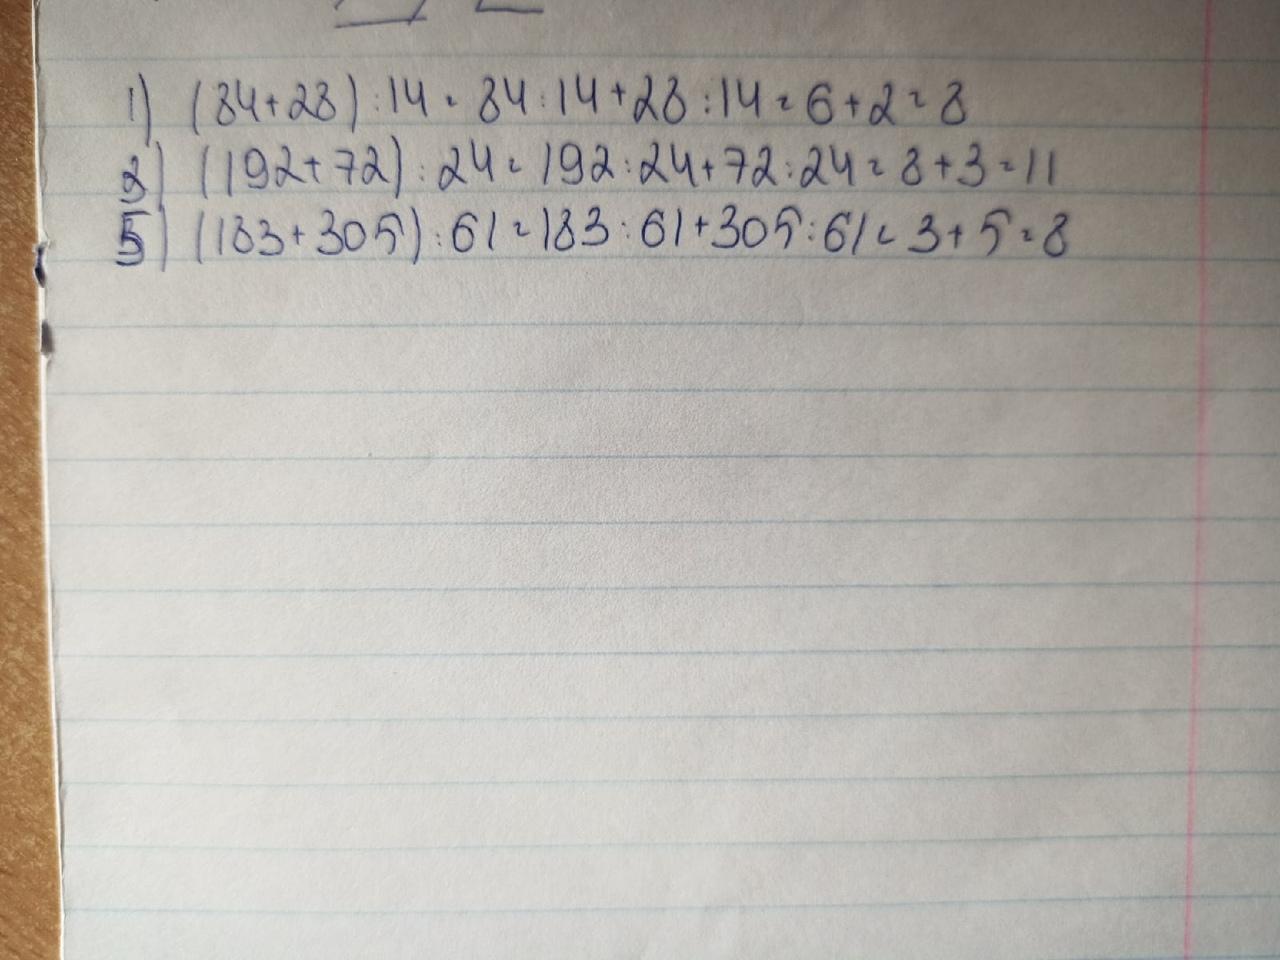 1) (84+28):14=84:14+28:14=6+2=8
2) (192+72):24=192:24+72:24=8+3=11
5) (183+305):61=183:61+305:61=3+5=8